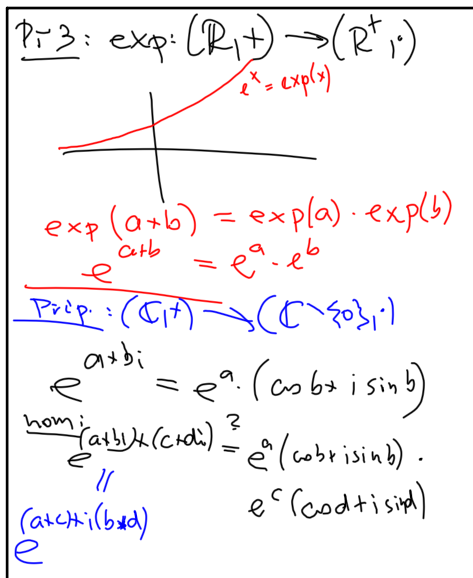 Pr 3: exp: (ℝ,+) → (ℝ⁺,·)
eˣ = exp(x)
exp(a+b) = exp(a) · exp(b)
e^{a+b} = e^a · e^b
Prip.: (ℂ,+) → (ℂ∖{0},·)
e^{a+bi} = e^a · (cos b + i sin b)
hom:
e^{(a+bi)+(c+di)} ?= e^a (cos b + i sin b) ·
e^c (cos d + i sin d)
||
e^{(a+c)+i(b+d)}